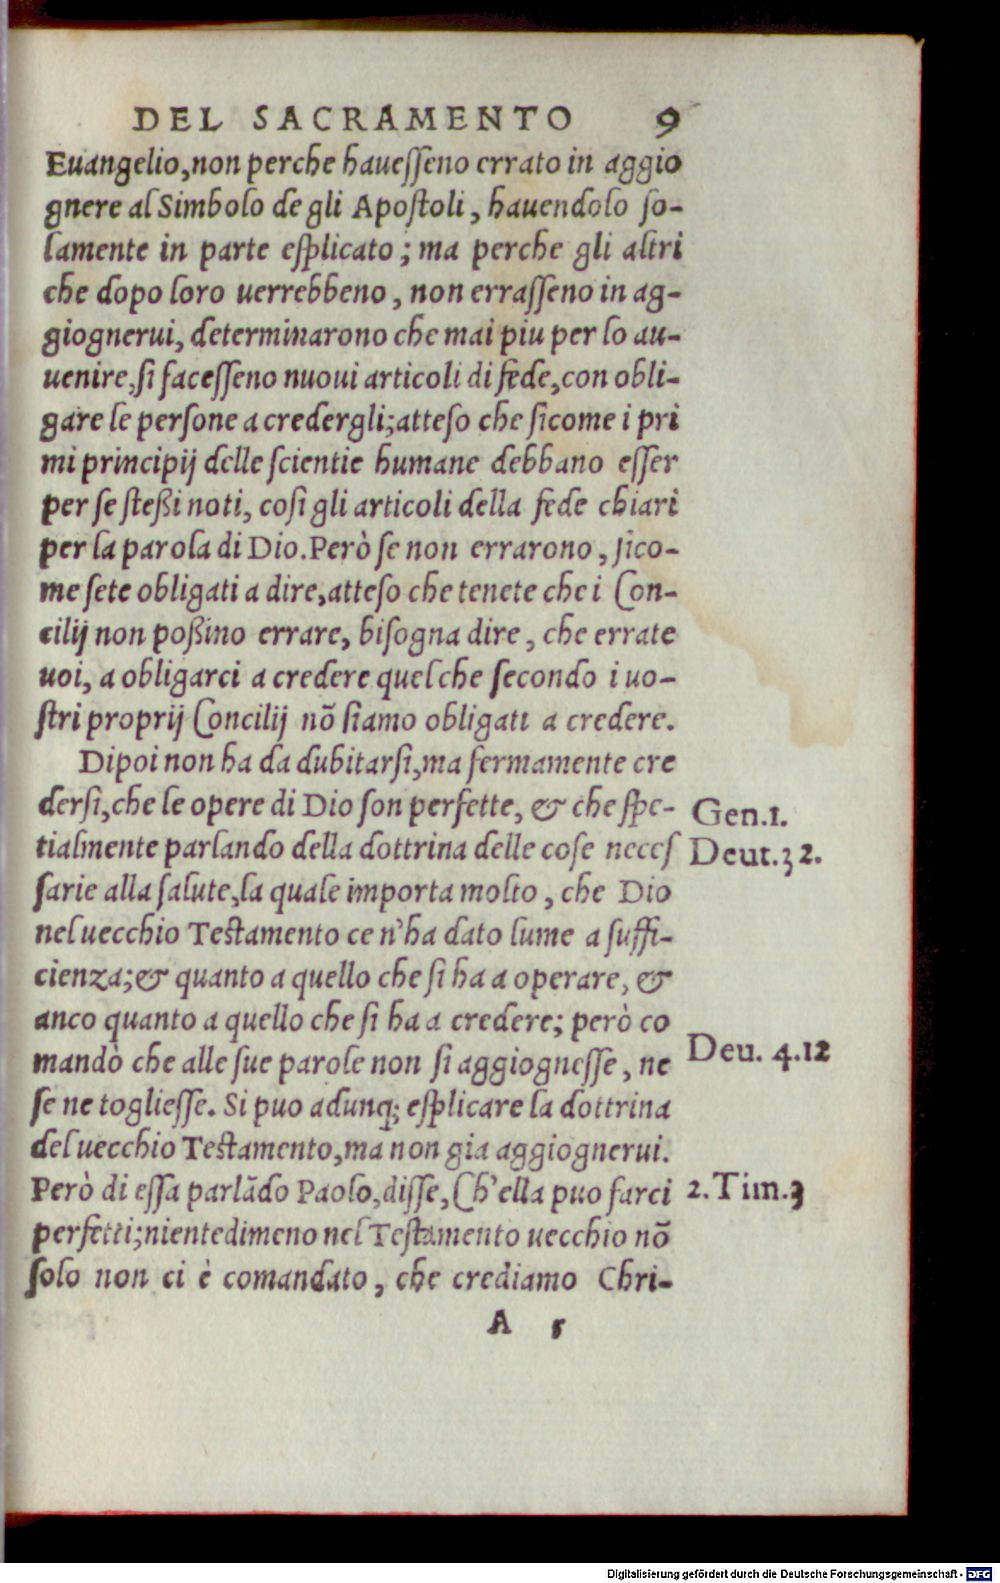 DEL SACRAMENTO 9
Euangelio, non perche hauesſeno errato in aggio
gnere al Simbolo de gli Apoſtoli, hauendolo ſo-
lamente in parte eſplicato; ma perche gli altri
che dopo loro uerrebbeno, non erraſſeno in ag-
giognerui, determinarono che mai piu per lo au-
uenire, ſi faceſſeno nuoui articoli di fede, con obli-
gare le perſone a credergli; atteſo che ſicome i pri
mi principij delle ſcientie humane debbano eſſer
per ſe steßi noti, coſi gli articoli della fede chiari
per la parola di Dio. Però ſe non errarono, ſico-
me ſete obligati a dire, atteſo che tenete che i Con-
cilij non poßino errare, biſogna dire, che errate
uoi, a obligarci a credere quel che secondo i uo-
ſtri proprij Concilij nõ ſiamo obligati a credere.
Dipoi non ha da dubitarſi, ma fermamente cre
derſi, che le opere di Dio ſon perfette, & che ſpe-
tialmente parlando della dottrina delle coſe neceſ
ſarie alla ſalute, la quale importa molto, che Dio
nel uecchio Teſtamento ce n'ha dato lume a ſuffi-
cienza; & quanto a quello che ſi ha a operare, &
anco quanto a quello che ſi ha a credere; però co
mandò che alle ſue parole non ſi aggiogneſſe, ne
ſe ne toglieſſe. Si puo adunq; eſplicare la dottrina
del uecchio Teſtamento, ma non gia aggiognerui.
Però di eſſa parlãdo Paolo, diſſe, Ch'ella puo farci
perfetti; nientedimeno nel Teſtamento uecchio nõ
ſolo non ci è comandato, che crediamo Chri-
A 5
Gen.1.
Deut.32.
Deu. 4.12
2. Tim.3
Digitalisierung gefördert durch die Deutsche Forschungsgemeinschaft - DFG